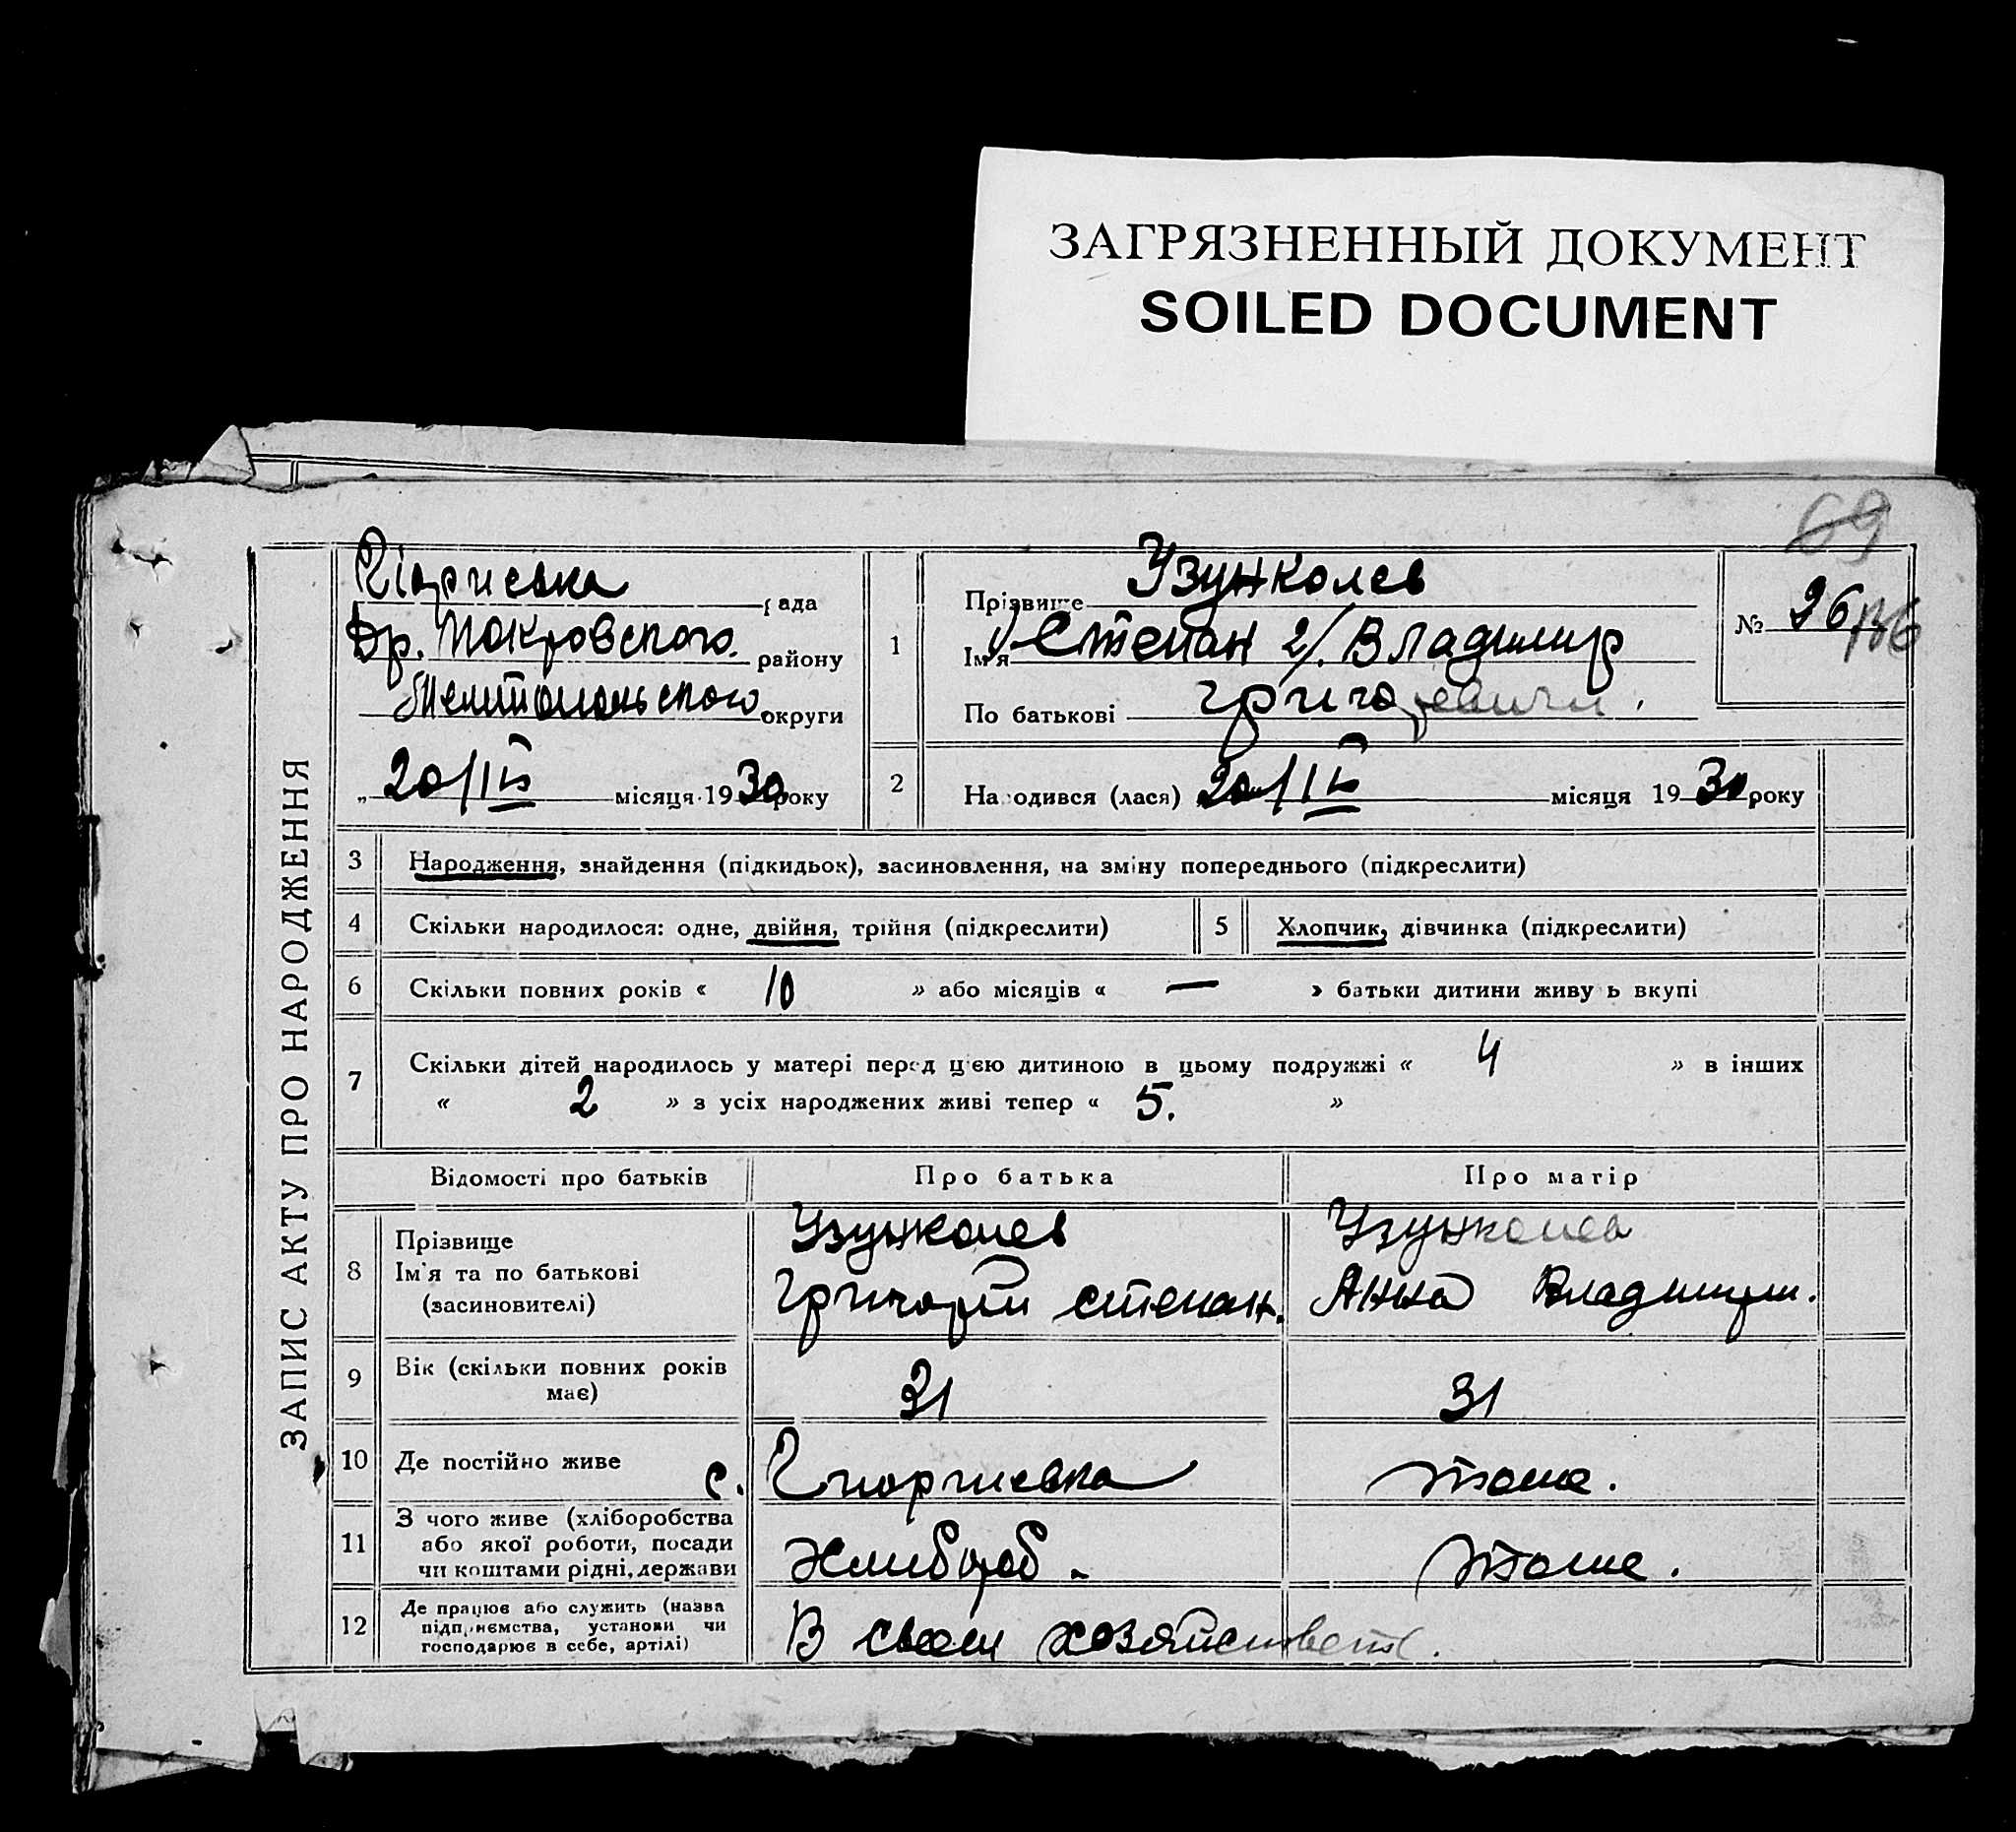 ЗАГРЯЗНЕННЫЙ ДОКУМЕНТ
SOILED DOCUMENT
69
ЗАПИС АКТУ ПРО НАРОДЖЕННЯ
рада
Пр. Покровского району
округи
„20/IV місяця 1930 року
1 Прізвище Узунколев
Ім'я 1/ Степан 2/. Владимир
По батькові Григоревичи.
№ 26
2 Народився (лася) 20/IV місяця 1930 року
3 Народження, знайдення (підкидьок), засиновлення, на зміну попереднього (підкреслити)
4 Скільки народилося: одне, двійня, трійня (підкреслити) 5 Хлопчик, дівчинка (підкреслити)
6 Скільки повних років « 10 » або місяців « — » батьки дитини живуть вкупі
7 Скільки дітей народилось у матері перед цією дитиною в цьому подружжі « 4 » в інших
« 2 » з усіх народжених живі тепер « 5. »
Відомості про батьків Про батька Про матір
8 Прізвище Узунколев Узунколев
Ім'я та по батькові Григорий Степан. Анна Владимир.
(засиновителі)
9 Вік (скільки повних років має) 31 31
10 Де постійно живе с. Гиоргиевка тоже.
11 З чого живе (хліборобства
або якої роботи, посади Хлибороб. тоже.
чи коштами рідні, держави
12 Де працює або служить (назва
підприємства, установи чи В своем хозяйстве
господарює в себе, артілі)